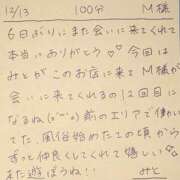 12/13 100分 M様
6日ぶりにまた会いに来てくれて
本当にありがとう♡♡今回は
みとがこのお店に来てM様が
会いに来てくれるの12回目に
なるね(o'ω'o)前のエリアで働いて
てた、風俗始めたての頃から
ずっと仲良くしてくれて嬉しい♡
また遊ぼうね!! みと